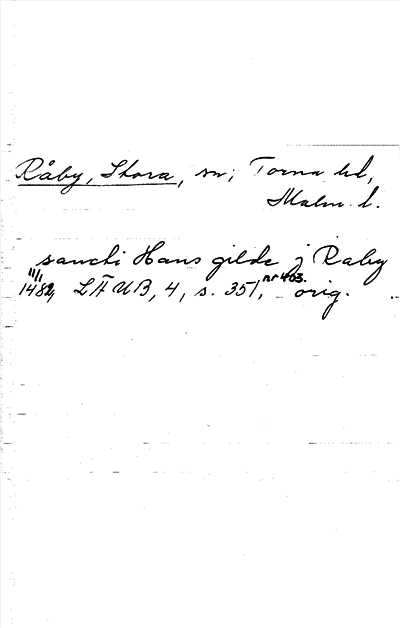 Råby, Stora, sn; Torna hd,
Malm. l.
sancti Hans gilde j Raby
11/1 1482, LÄUB, 4, s. 351, nr 403. orig.